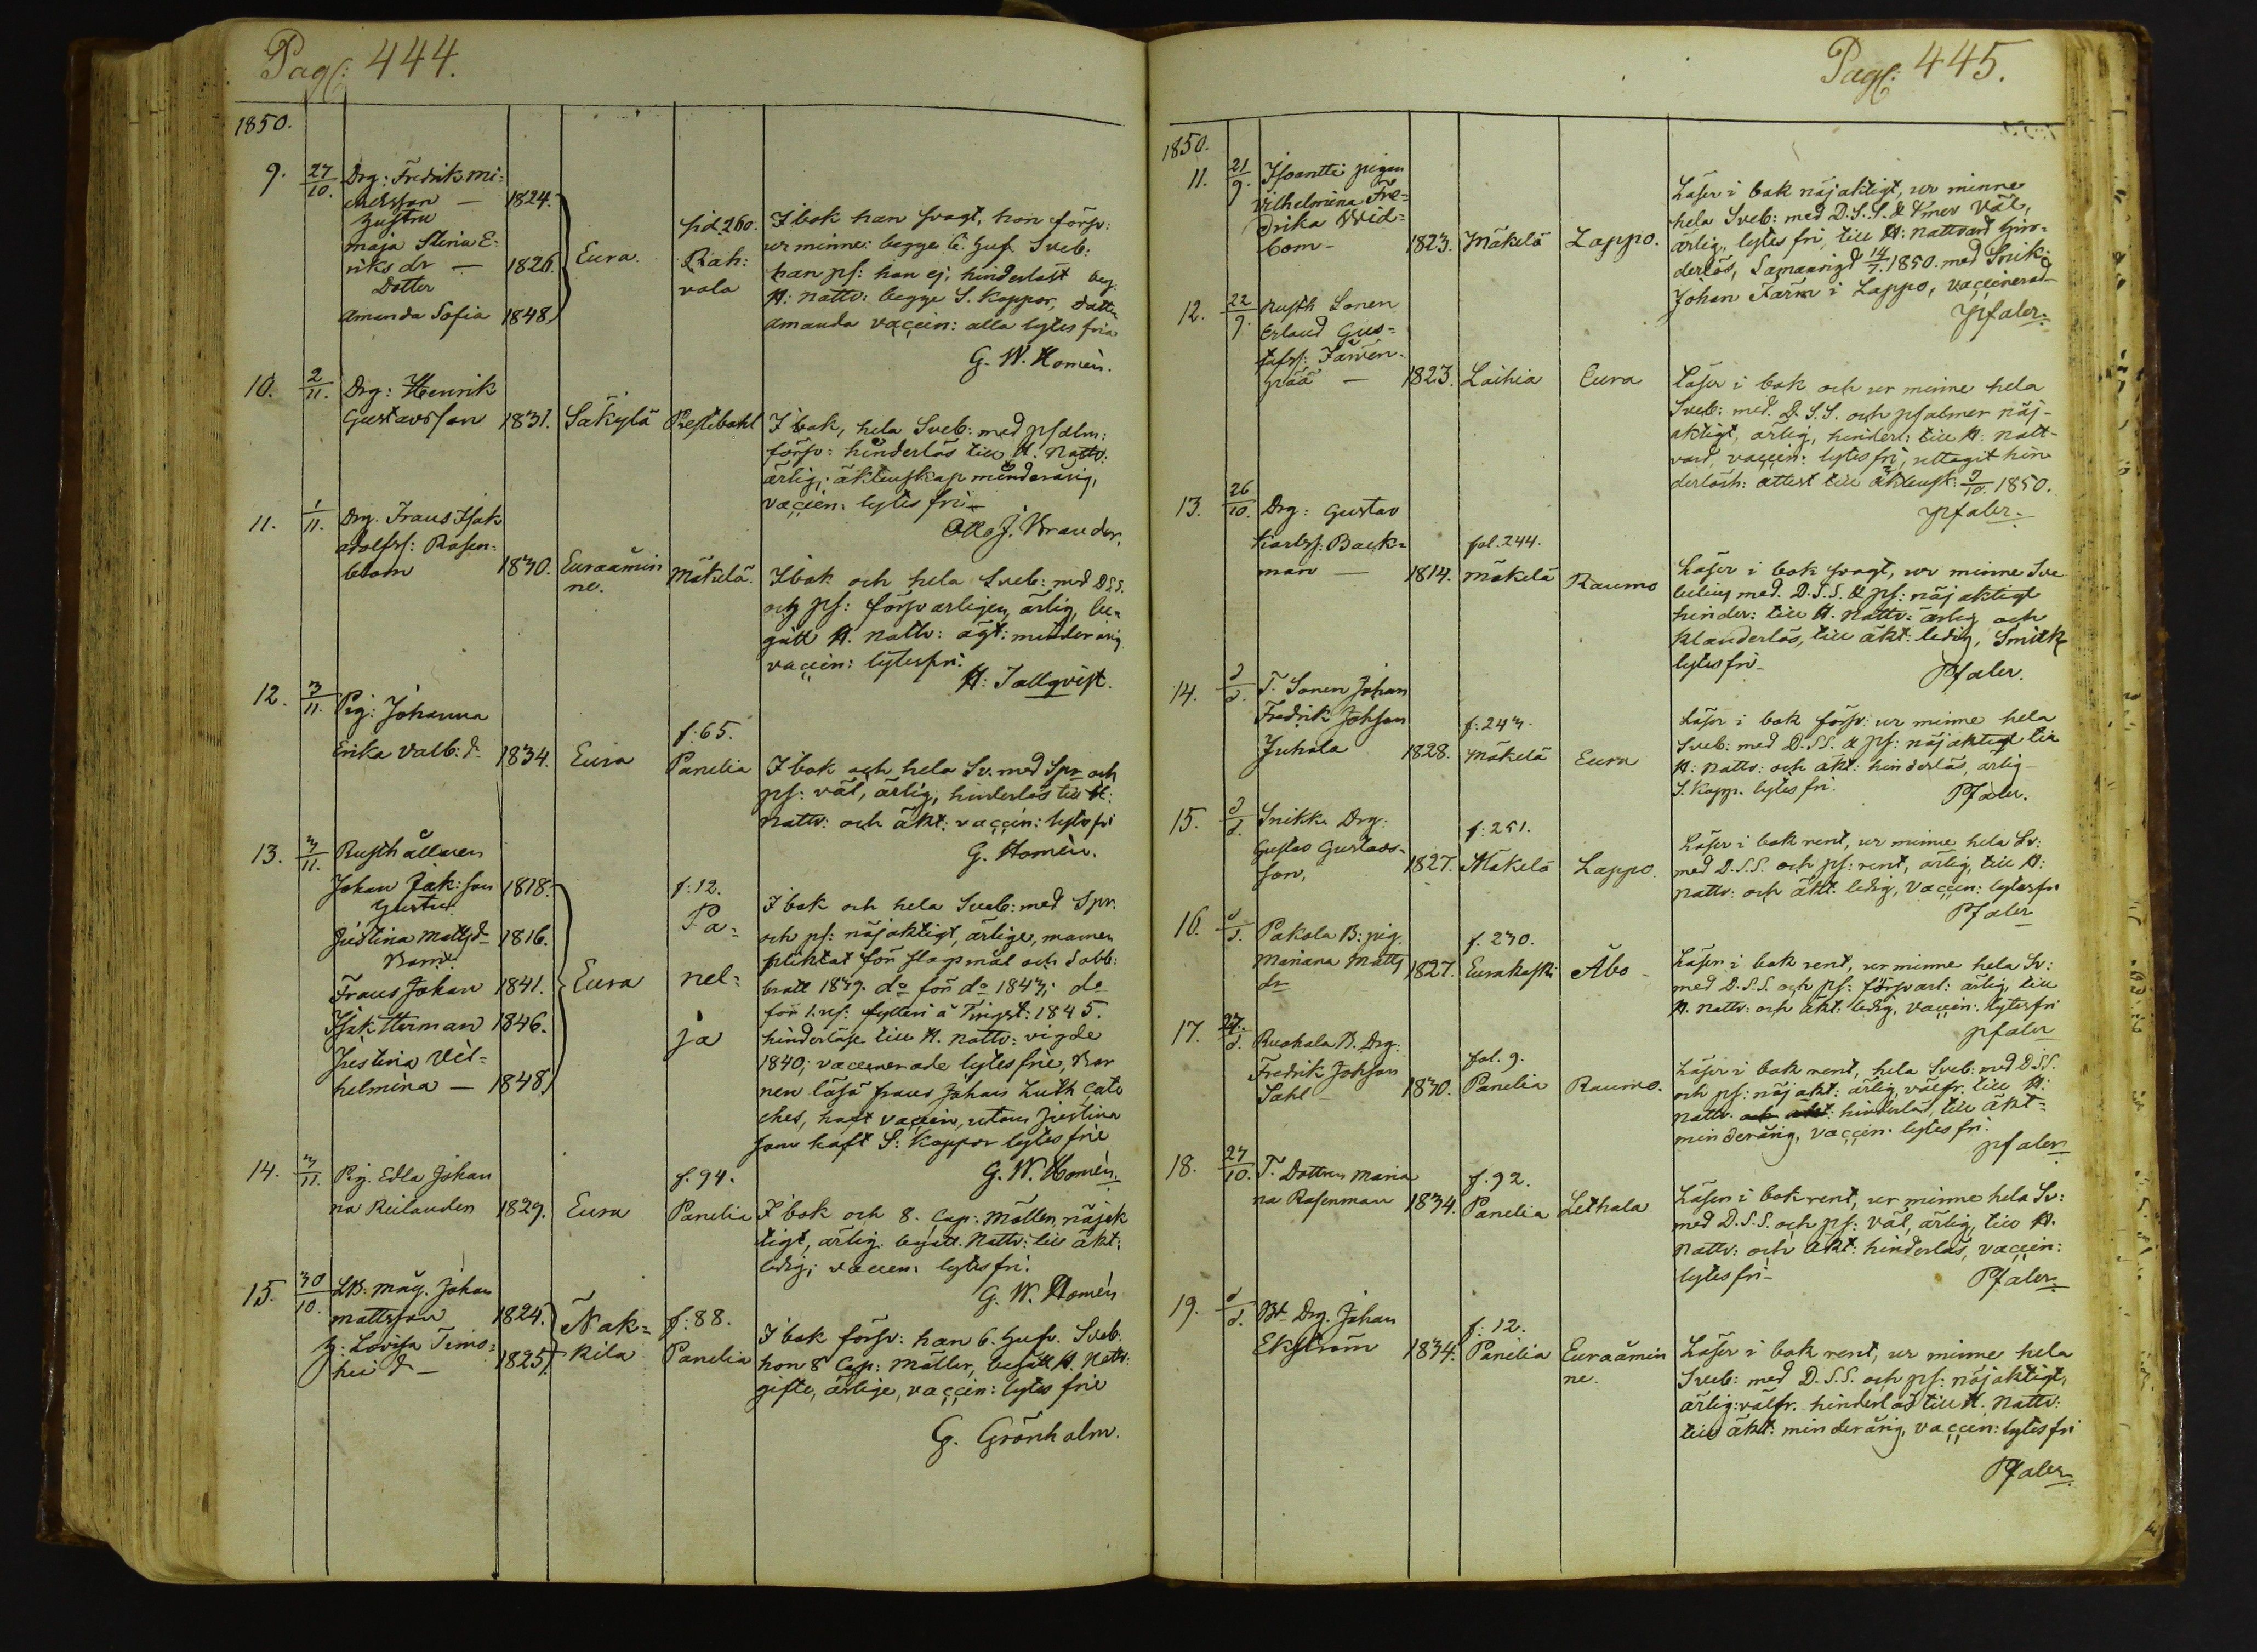 Pag: 444.
1850.
9. 27/10. Drg: Fredrik Mi-
chelsson — 1824.
hustru
Maja Stina E-
riks dr — 1826. Eura.
Dotter
Amanda Sofia 1848.
sid. 260.
Rah:
vola
I bok han svagt, hon försv:
ur minne: begge 6. Huf. Sveb:
han ps: hon ej; hinderlöst beg:
H: Nattv: begge S. Koppor, Dottr
Amanda vaccin: alla lytes fria
G. W. Homén.
10. 2/11. Drg: Henrik
Gustavsson 1831. Säkylä Prestbohl
I bok, hela Sveb: med psalm:
försv: hinderlös till H. Nattv:
ärlig; äktenskap minderårig,
vaccin: lytes fri
Otto J. Brander.
11. 1/11. Drg. Frans Isak
Adolfss: Rosen-
blom 1830. Euraåmin
ne. Mäkelä.
I bok och hela Sveb: med D.S.S.
och ps: försvarligen, ärlig, be-
gått H. Nattv: ägt: minderårig
vaccin: lytesfri.
H: Tallqvist.
12. 3/11. Pig: Johanna
Erika Valb: dr 1834. Eura
f: 65.
Panelia
I bok och hela Sv. med Spr och
ps: väl, ärlig, hinderlös till H:
Nattv: och äkt: vaccin: lytesfri
G. Homèn.
13. 3/11. Rusthållaren
Johan Jak: son 1818.
Hustru
Justina Mattsdr 1816.
Barn:
Frans Johan 1841. Eura
Isak Herman 1846.
Justina Vil-
helmina — 1848.
f: 12.
Pa-
nel-
ja
I bok och hela Sveb: med Spr.
och ps: nöjaktigt, ärlige, mannen
pliktat för slagsmål och sabb:
brott 1839. do för do 1843; do
för 1. res: fylleri å Tingst: 1845.
hinderlöse till H. Nattv: vigde
1840; vaccinerade lytes frie, Bar
nen läsa Frans Johan Luth Cate
ches, haft vaccin, utom Justina
som haft S: Koppor lytes frie
G. W. Homén.
14. 3/11. Pig. Edla Johan
na Reilanden 1829. Eura
f. 94.
Panelia
I bok och 8. Cap: Möller, nöjak
tigt, ärlig. begått. Nattv: till äkt:
ledig; vaccin: lytes fri.
G. W. Homén
15. 30/10. LB: Måg. Johan
Mattsson 1824.
h: Lovisa Timo-
thei dr — 1825. Nak-
kila
f: 88.
Panelia
I bok försv: han 6. Hufv. Sveb:
hon 8 Cap: Möller, begått H. Nattv:
gifte, ärlige, vaccin: lytes frie
G. Grönholm.
Pag: 445.
1850.
11. 21/9. Isoantti pigan
Vilhelmina Fre-
drika Wid-
bom — 1823. Mäkelä Lappo.
Läser i bok nöjaktigt, ur minne
hela Sveb: med D.S.S. & Psmer väl,
ärlig, lytes fri, till H: Nattvard hin-
derlös, Samaarigt 14/7. 1850. med Snik:
Johan Färm i Lappo, vaccinerad
Pfaler.
12. 22/9. Rusth Sonen
Erland Gus-
tafss: Jäwen-
pää — 1823. Laihia Eura
Läser i bok och ur minne hela
Sveb: med. D. S. S. och psalmer nöj-
aktigt, ärlig, hinderl: till H: Natt-
vard, vaccin: lytes fri, uttagit hin
derlösh: attest till äktensk: 9/10. 1850.
Pfaler.
13. 26/10. Drg: Gustav
Karlss: Back-
man — 1814.
fol. 244.
Mäkelä Raumo
Läser i bok svagt, ur minne Sve
beliug med. D.S.S. & ps: nöjaktigt
hinder: till H. Nattv: ärlig och
klanderlös, till äkt: ledig, Smitk
lytes fri
Pfaler.
14. d/d. T. Sonen Johan
Fredrik Johsson
Juhola 1828.
f: 243.
Mäkelä Eura
Läser i bok försv: ur minne hela
Sveb: med D.S.S. & ps: nöjaktigt till
H: Nattv: och äkt: hinderlös, ärlig
S. Kopp. lytes fri.
Pfaler.
15. d/d. Snikk. Drg:
Gustav Gustavs-
son, 1827.
f: 251.
Mäkelä Lappo.
Läser i bok rent, ur minne hela Sv:
med D.S.S. och ps: rent, ärlig, till H:
Nattv: och äkt. ledig, vaccin: lytesfri
Pfaler
16. d/d. Pakola B: pig.
Mariana Matts
dr 1827.
f. 230.
Eurakoski Åbo
Läser i bok rent, ur minne hela Sv:
med D.S.S. och ps: försvarl: ärlig, till
H. Nattv: och äkt: ledig, vaccin: lytesfri
Pfaler
17. 27/d. Ruohola B. Drg:
Fredrik Johsson
Sahl — 1830.
fol. 9.
Panelia Raumo.
Läser i bok rent, hela Sveb. med D.S.S.
och ps: nöjakt: ärlig, välfr. till H:
Nattv. och äkt: hinderlös, till äkt-
minderårig, vaccin: lytes fri.
Pfaler
18. 27/10. T. Dottren Maria
na Rosenman 1834.
f. 92.
Panelia Lethala
Läser i bok rent, ur minne hela Sv:
med D.S.S. och ps: väl, ärlig, till H.
Nattv: och äkt: hinderlös, vaccin:
lytes fri
Pfaler
19. d/d. Bt Drg. Johan
Ekström 1834.
f: 12.
Panelia Euraåmin
ne.
Läser i bok rent, ur minne hela
Sveb: med D. S.S. och ps: nöjaktigt,
ärlig: välfr. hinderlös till H. Nattv:
till äkt: minderårig, vaccin: lytes fri
Pfaler